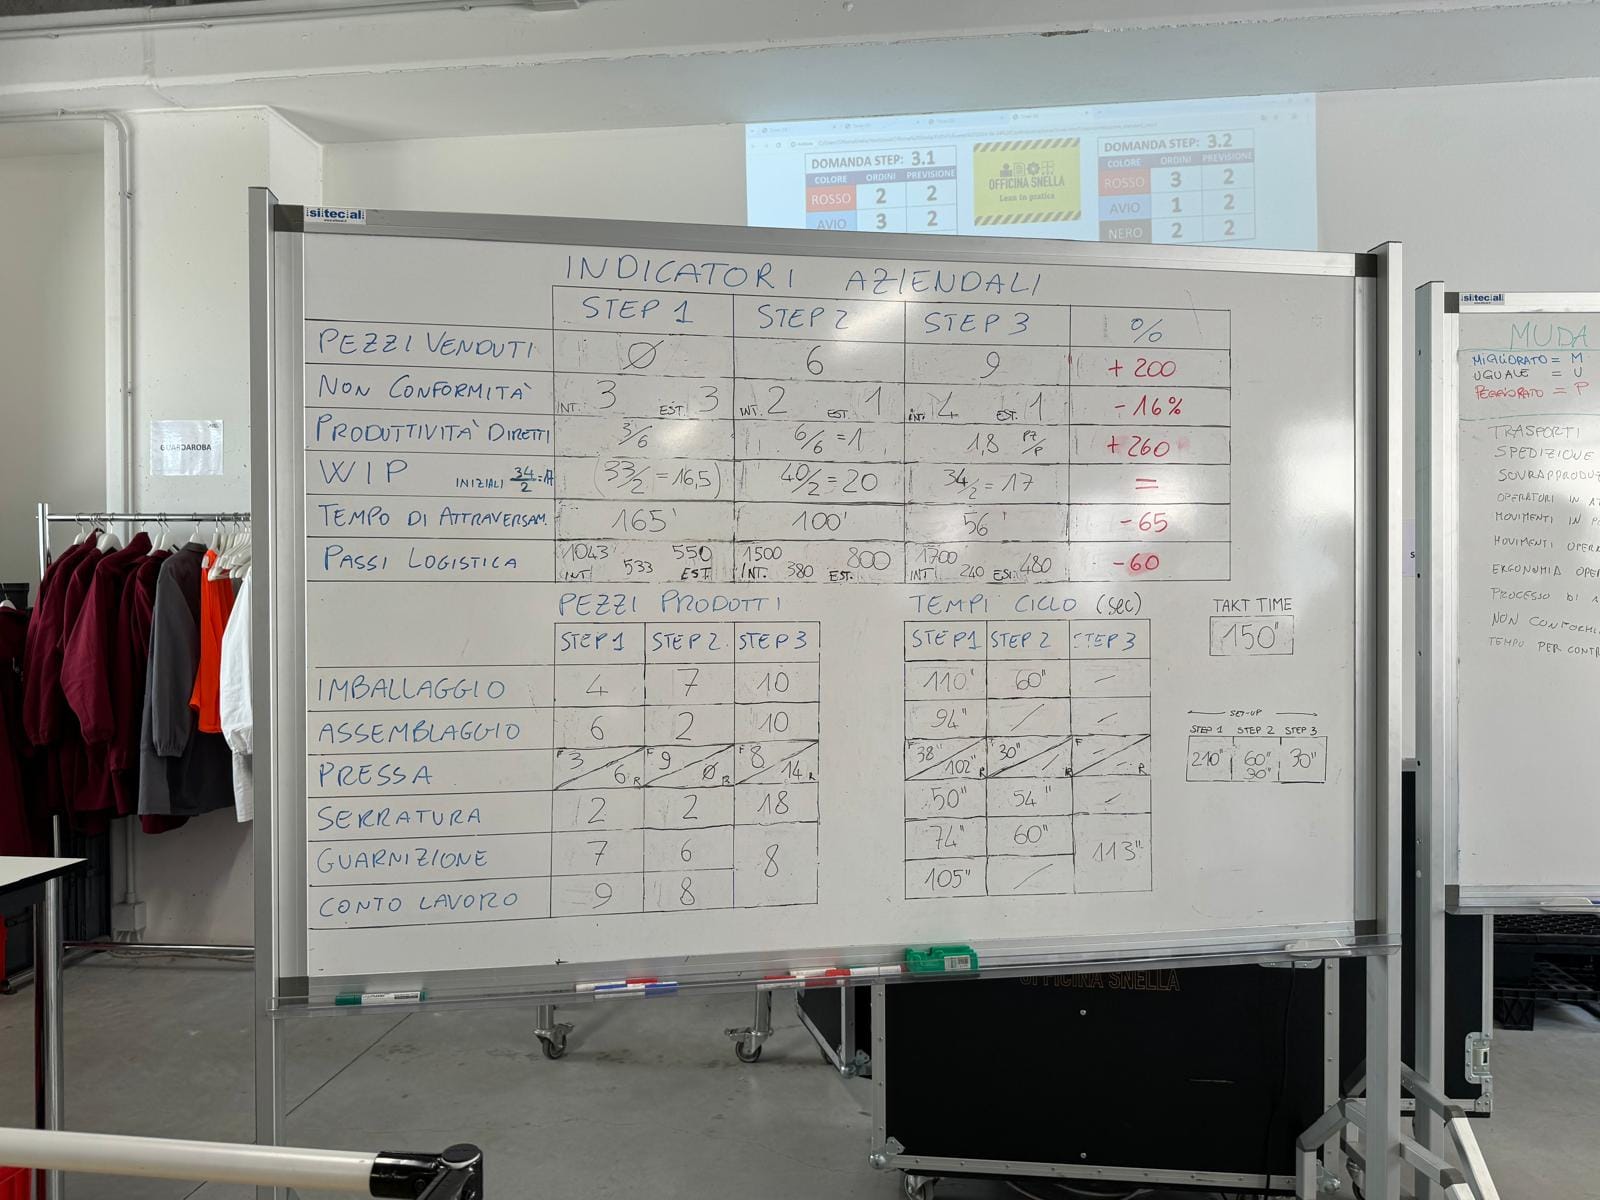 DOMANDA STEP: 3.1
COLORE ORDINI PREVISIONE
ROSSO 2 2
AVIO 3 2
OFFICINA SNELLA
Lean in pratica
DOMANDA STEP: 3.2
COLORE ORDINI PREVISIONE
ROSSO 3 2
AVIO 1 2
NERO 2 2
sitecal
GUARDAROBA
INDICATORI AZIENDALI
STEP 1 STEP 2 STEP 3 %
PEZZI VENDUTI Ø 6 9 + 200
NON CONFORMITÀ INT. 3 EST. 3 INT. 2 EST. 1 INT. 4 EST. 1 -16%
PRODUTTIVITÀ DIRETTI 3/6 6/6 = 1 1,8 PZ/P + 260
WIP INIZIALI 34/2 = 17 (33/2 = 16,5) 40/2 = 20 34/2 = 17 =
TEMPO DI ATTRAVERSAM. 165' 100' 56' -65
PASSI LOGISTICA 1043 INT. 533 550 EST. 1500 INT. 380 EST. 800 1700 INT 240 EST. 480 -60
PEZZI PRODOTTI
STEP 1 STEP 2 STEP 3
IMBALLAGGIO 4 7 10
ASSEMBLAGGIO 6 2 10
PRESSA F 3 6 R F 9 Ø R F 8 14 R
SERRATURA 2 2 18
GUARNIZIONE 7 6 8
CONTO LAVORO 9 8
TEMPI CICLO (sec)
STEP 1 STEP 2 STEP 3
110" 60" /
94" / /
F 38" 102" R F 30" / R F - - R
50" 54" /
74" 60" 113"
105" /
TAKT TIME
150"
SET-UP
STEP 1 STEP 2 STEP 3
210" 60" 90" 30"
sitecal
MUDA
MIGLIORATO = M
UGUALE = U
PEGGIORATO = P
TRASPORTI
SPEDIZIONE
SOVRAPRODUZ
OPERATORI IN
MOVIMENTI IN
MOVIMENTI OPER
ERGONOMIA OPE
PROCESSO DI
NON CONFORMI
TEMPO PER CONT
OFFICINA SNELLA